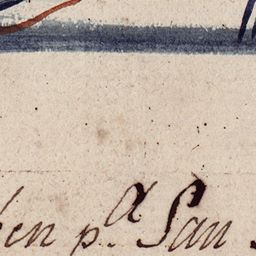 en p.ª San